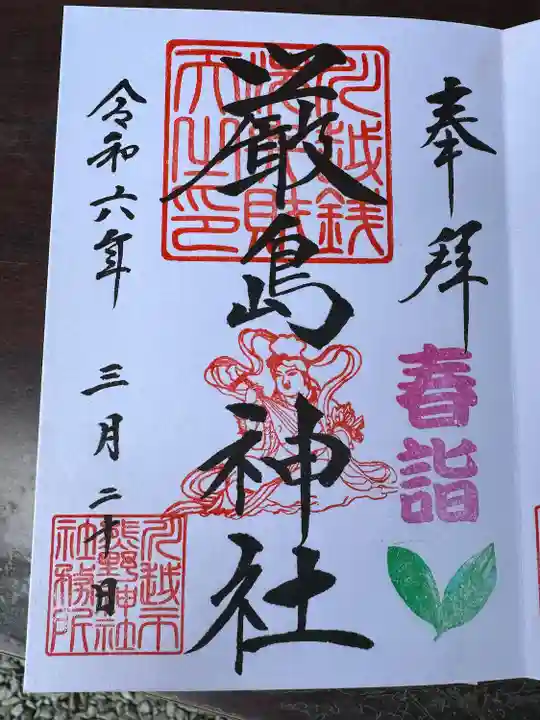 奉拜
春詣
川越銭
洗弁財
天之印
厳島神社
令和六年 三月二十日
川越市
熊野神社
社務所